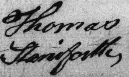 Thomas
Staniforth,